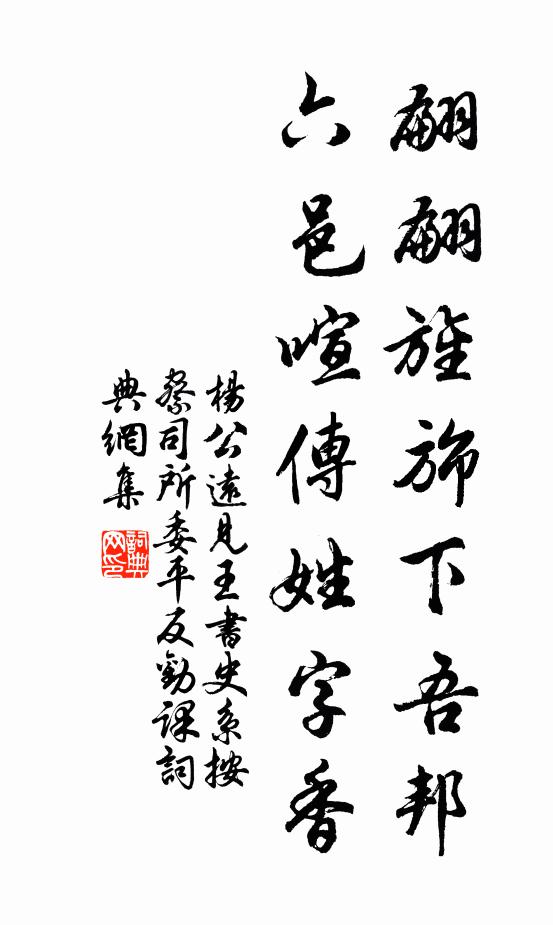 翩翩旌旆下吾邦
六邑喧傳姓字香
楊公遠見王書史系按
察司所委平反勸課詞
典網集
詞典网印